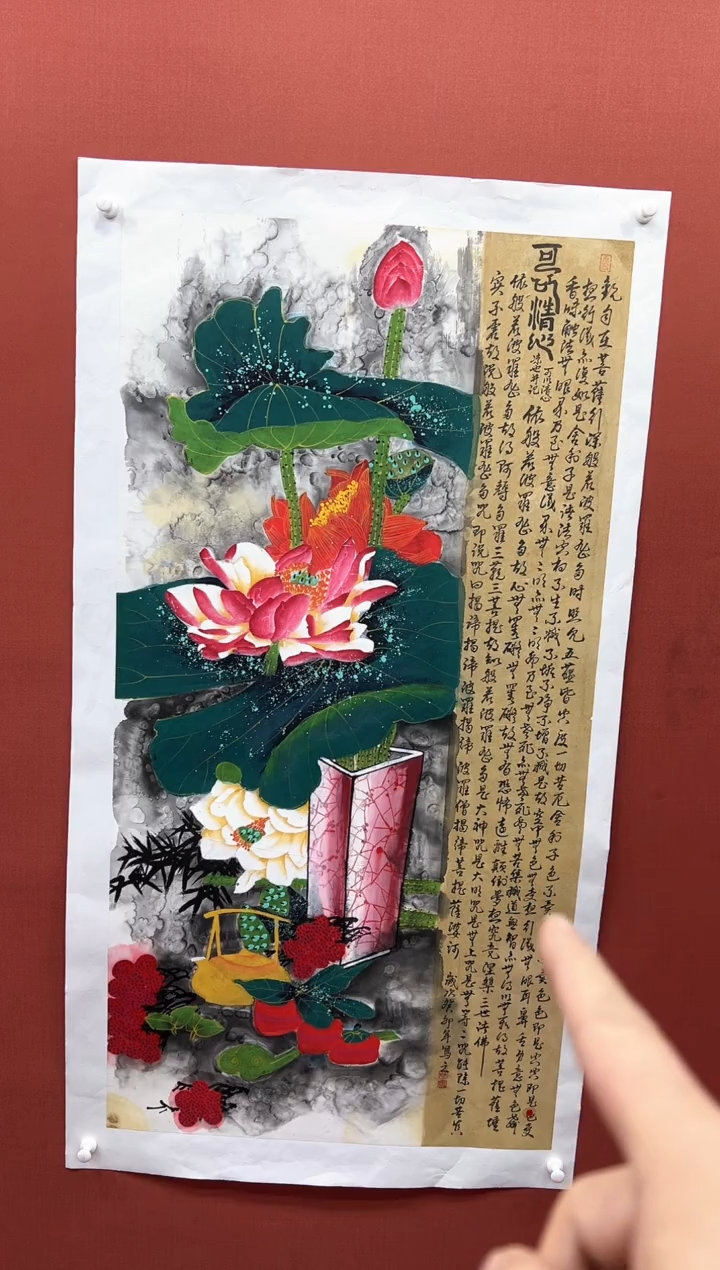 觀自在菩薩行深般若波羅蜜多時照見五蘊皆空度一切苦厄舍利子色不異色色即是空空即是色受
想行識亦復如是舍利子是諸法空相不生不滅不垢不淨不增不減是故空中無色無受想行識無眼耳鼻舌身意無色聲
香味觸法無眼界乃至無意識界無無明亦無無明盡乃至無老死亦無老死盡無苦集滅道無智亦無得以無所得故菩提薩埵
可以清心
依般若波羅蜜多故心無罣礙無罣礙故無有恐怖遠離顛倒夢想究竟涅槃三世諸佛
依般若波羅蜜多故得阿耨多羅三藐三菩提故知般若波羅蜜多是大神咒是大明咒是無上咒是無等等咒能除一切苦真
實不虛故說般若波羅蜜多咒即說咒曰揭諦揭諦波羅揭諦波羅僧揭諦菩提薩婆訶
歲次癸卯年寫之